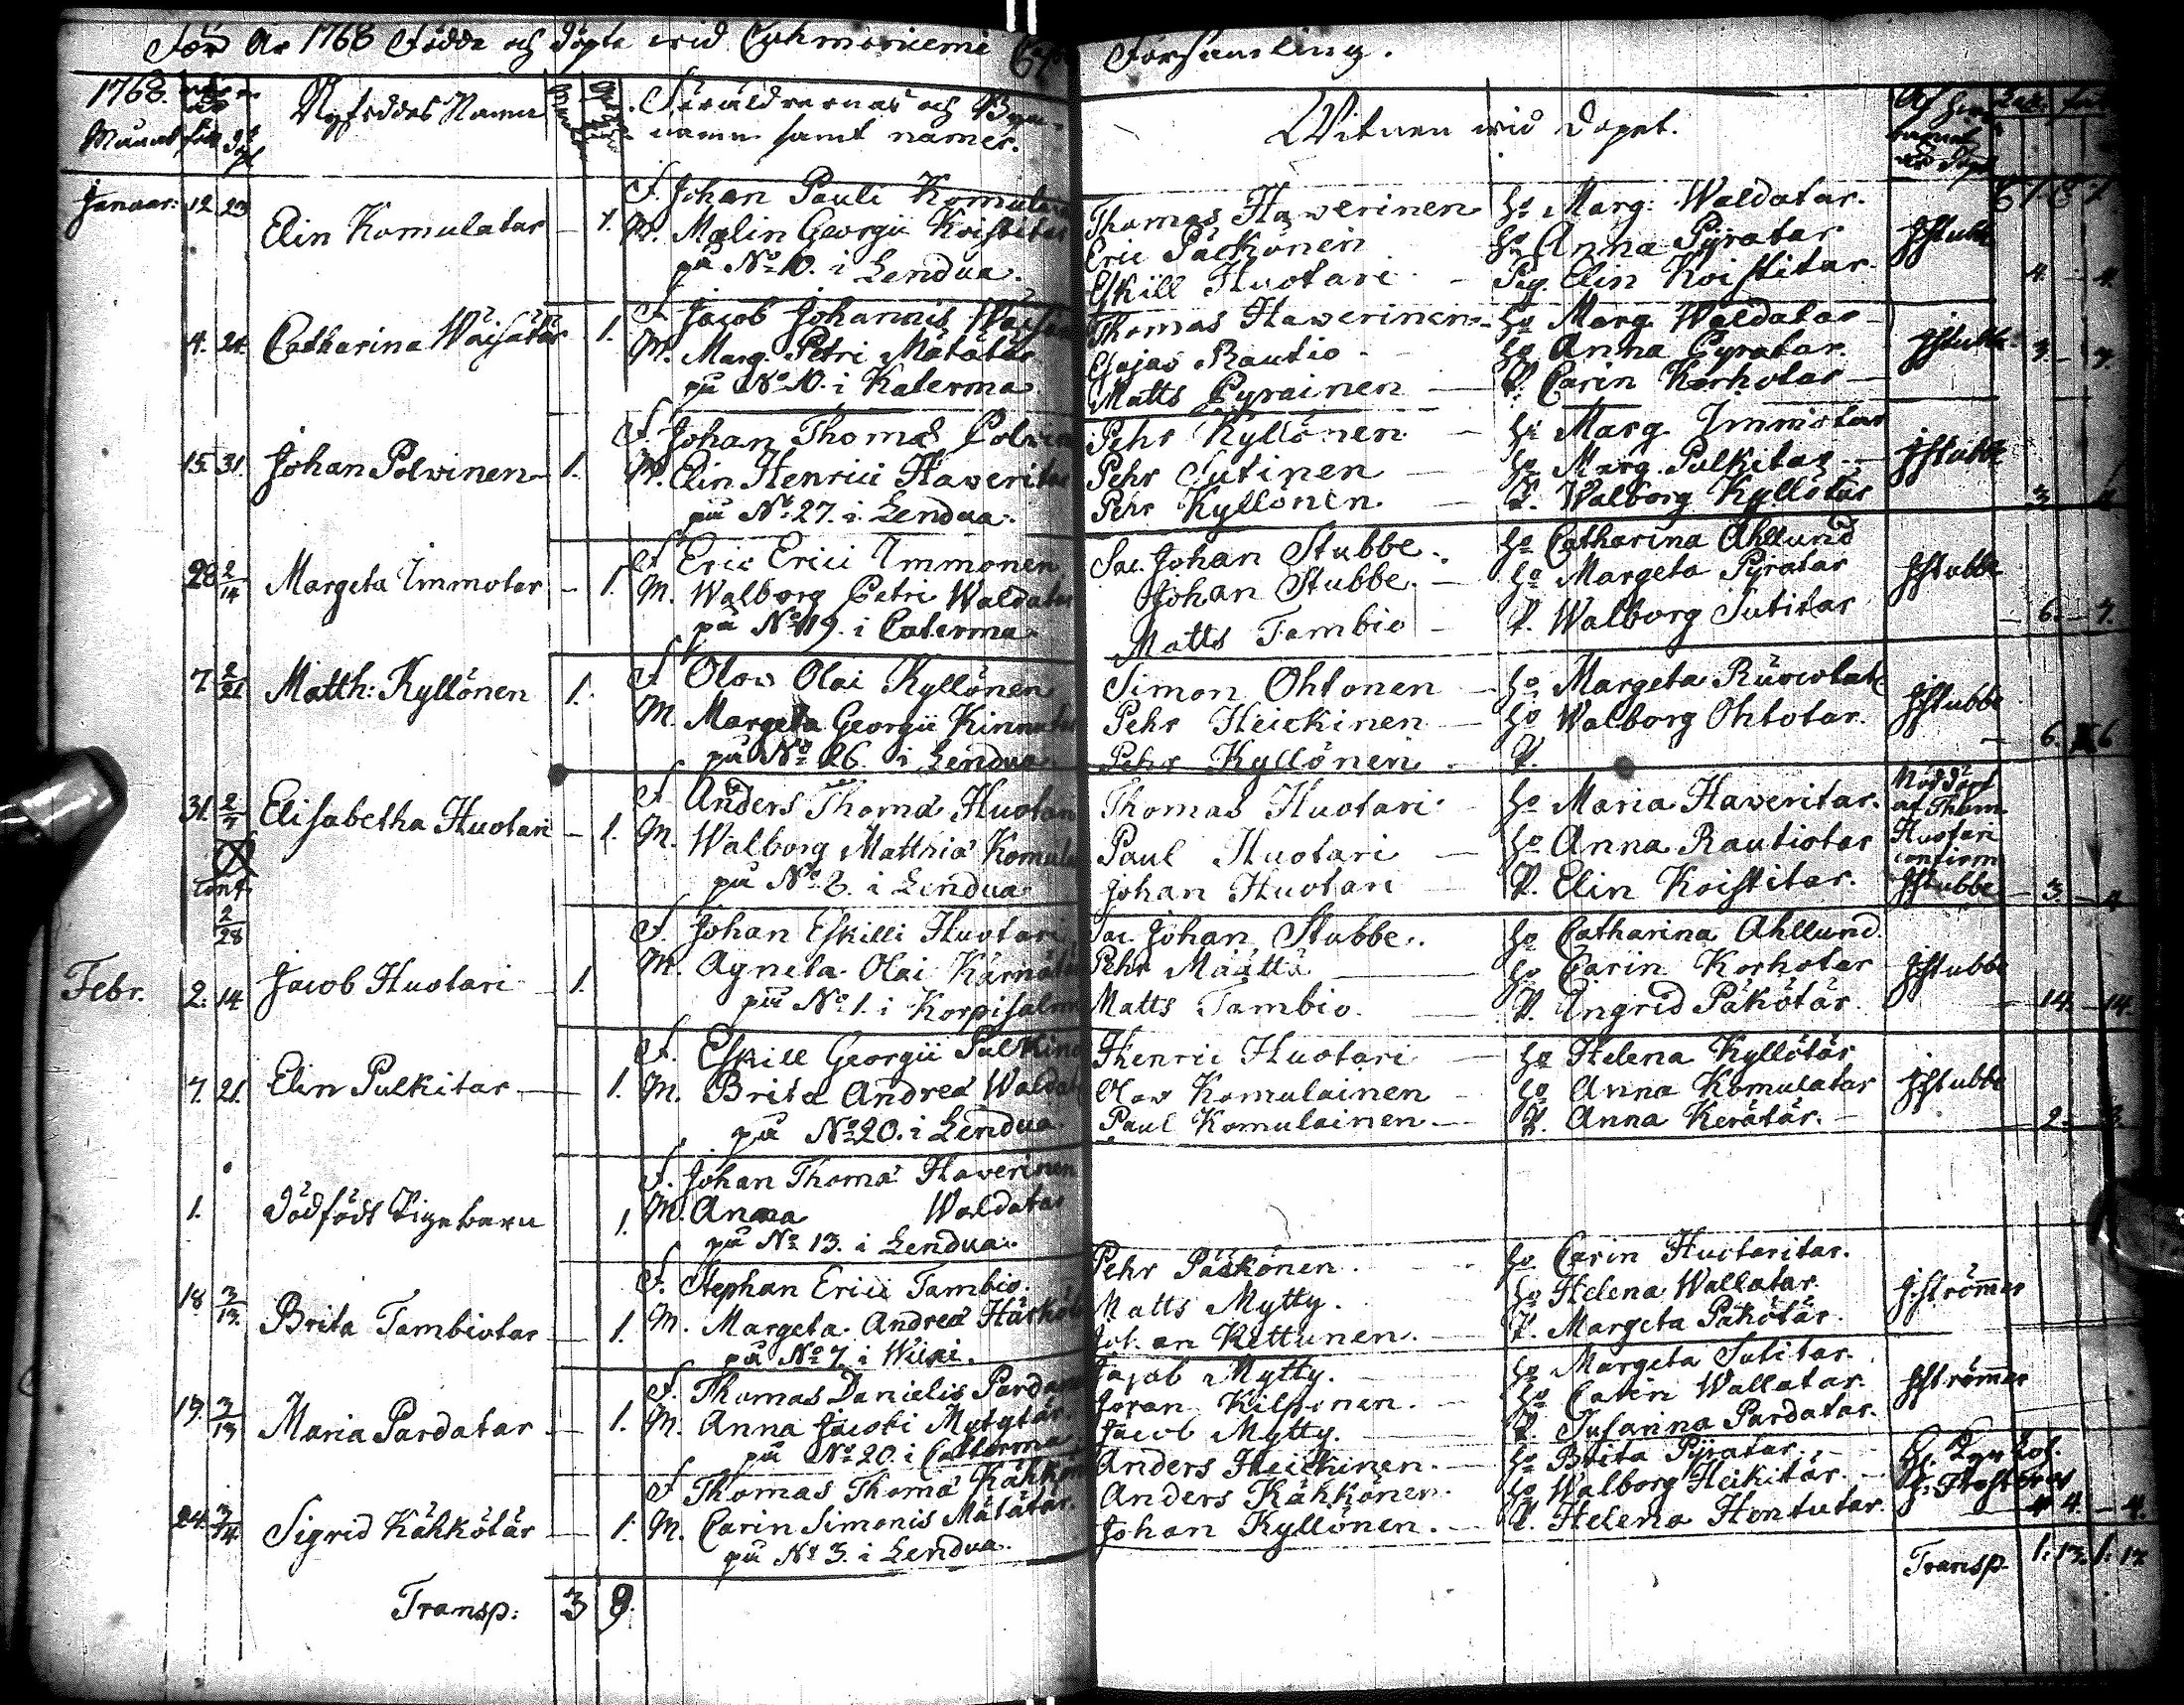 För År 1768 Födde och döpte wid Cuhmoniemi Församling.
1768. Månat född döpt Nyföddas Namn Föräldrarnas och Byn-
namn samt namer. Wittnen wid Dopet. Af hvem barnet är döpt
Januar: 12 23 Elin Komulatar 1. F. Johan Pauli Komulain Thomas Hawerinen ho Marg. Waldatar.
M. Malin Georgii Koistitar Eric Päckönen ho Anna Pyratar JStubbe
på No 10. i Lendua. Eskill Huotari - Pig. Elin Koistitar. 4 - 4
4. 24. Catharina Wäisätär 1. F. Jacob Johannis Wäisä Thomas Hawerinen ho Marg Waldatar
M. Marg. Petri Mätätär Esajas Rautio ho Anna Pyratar. JStubbe 3 - 3.
på No 10. i Katerma. Matts Pyrainen P. Carin Korhotar
15. 31. Johan Polwinen 1. F. Johan Thomæ Polwin Pehr Kyllönen ho Marg Immotar
M. Elin Henrici Haweritar Pehr Sutinen ho Marg. Pulkitar JStubbe
på No 27. i Lendua. Pehr Kyllönen P. Walborg Kyllötar 3
28 2/14 Margeta Immotar 1. F Eric Erici Immonen Sac. Johan Stubbe. ho Catharina Ahllund
M. Walborg Petri Waldatar Johan Stubbe. ho Margeta Pyratar JStubbe
på No 119. i Caterma Matts Tambio P. Walborg Sutitar 6. - 7.
7 2/21 Matth: Kyllönen 1. F Olow Olai Kyllönen Simon Ohtonen ho Margeta
M. Margeta Georgii Kinnutar Pehr Heickinen ho Walborg Ohtotar. JStubbe
på No 26. i Lendua Pehr Kyllönen. P. 6. 6
31. 2/7 Elisabetha Huotari 1. F Anders Thomæ Huotari Thomas Huotari ho Maria Haweritar. Nöddöpt af Thom
conf. M. Walborg Matthiæ Komula Paul Huotari ho Anna Rautiotar Huotari confirm
2/28 på No 2. i Lendua Johan Huotari P. Elin Koistitar. JStubbe 3.
Febr. 2. 14 Jacob Huotari 1. F. Johan Eskilli Huotari Sac. Johan Stubbe. ho Catharina Ahllund.
M. Agneta Olai Kärnätär Pehr Määttä ho Carin Korhotar JStubbe
på No 1. i Korpisalm Matts Tambio. P. Ingrid Päkötär 14. 14.
7. 21. Elin Pulkitar 1. F. Eskill Georgii Pulkine Henric Huotari ho Helena Kyllötär
M. Brita Andreæ Waldat Olow Komulainen ho Anna Komulatar JStubbe
på No 20. i Lendua Paul Komulainen P. Anna Kerätär. 2.
1. Dödfödt Pigebarn 1. F. Johan Thomæ Hawerinen
M. Anna Waldatar
på No 13. i Lendua.
18 3/13 Brita Tambiotar 1. F. Stephan Erici Tambio. Pehr Päskönen. ho Carin Huotaritar.
M. Margeta Andreæ Härkö Matts Mytty. ho Helena Wallatar. JStrömmer
på No 7. i Wieki. Johan Kettunen. P. Margeta Päkötär.
19. 3/13 Maria Pardatar 1. F. Thomas Danielis Parda Jacob Mytty. ho Margeta Sutitar.
M. Anna Jacobi Mytytär. Jöran Kilponen. ho Carin Wallatar. JStrömmer
på No 20. i Catterma Jacob Mytty. P. Susanna Pardatar.
24. 3/14 Sigrid Kähkötär 1. F Thomas Thomæ Kähkön Anders Heickinen. ho Brita Pyratar.
M. Carin Simonis Mätätär. Anders Kähkönen. ho Walborg Heikitär.
på No 3. i Lendua. Johan Kyllönen. P. Helena Hontutar. 4 - 4.
Transp: 3 9. Transp. 1: